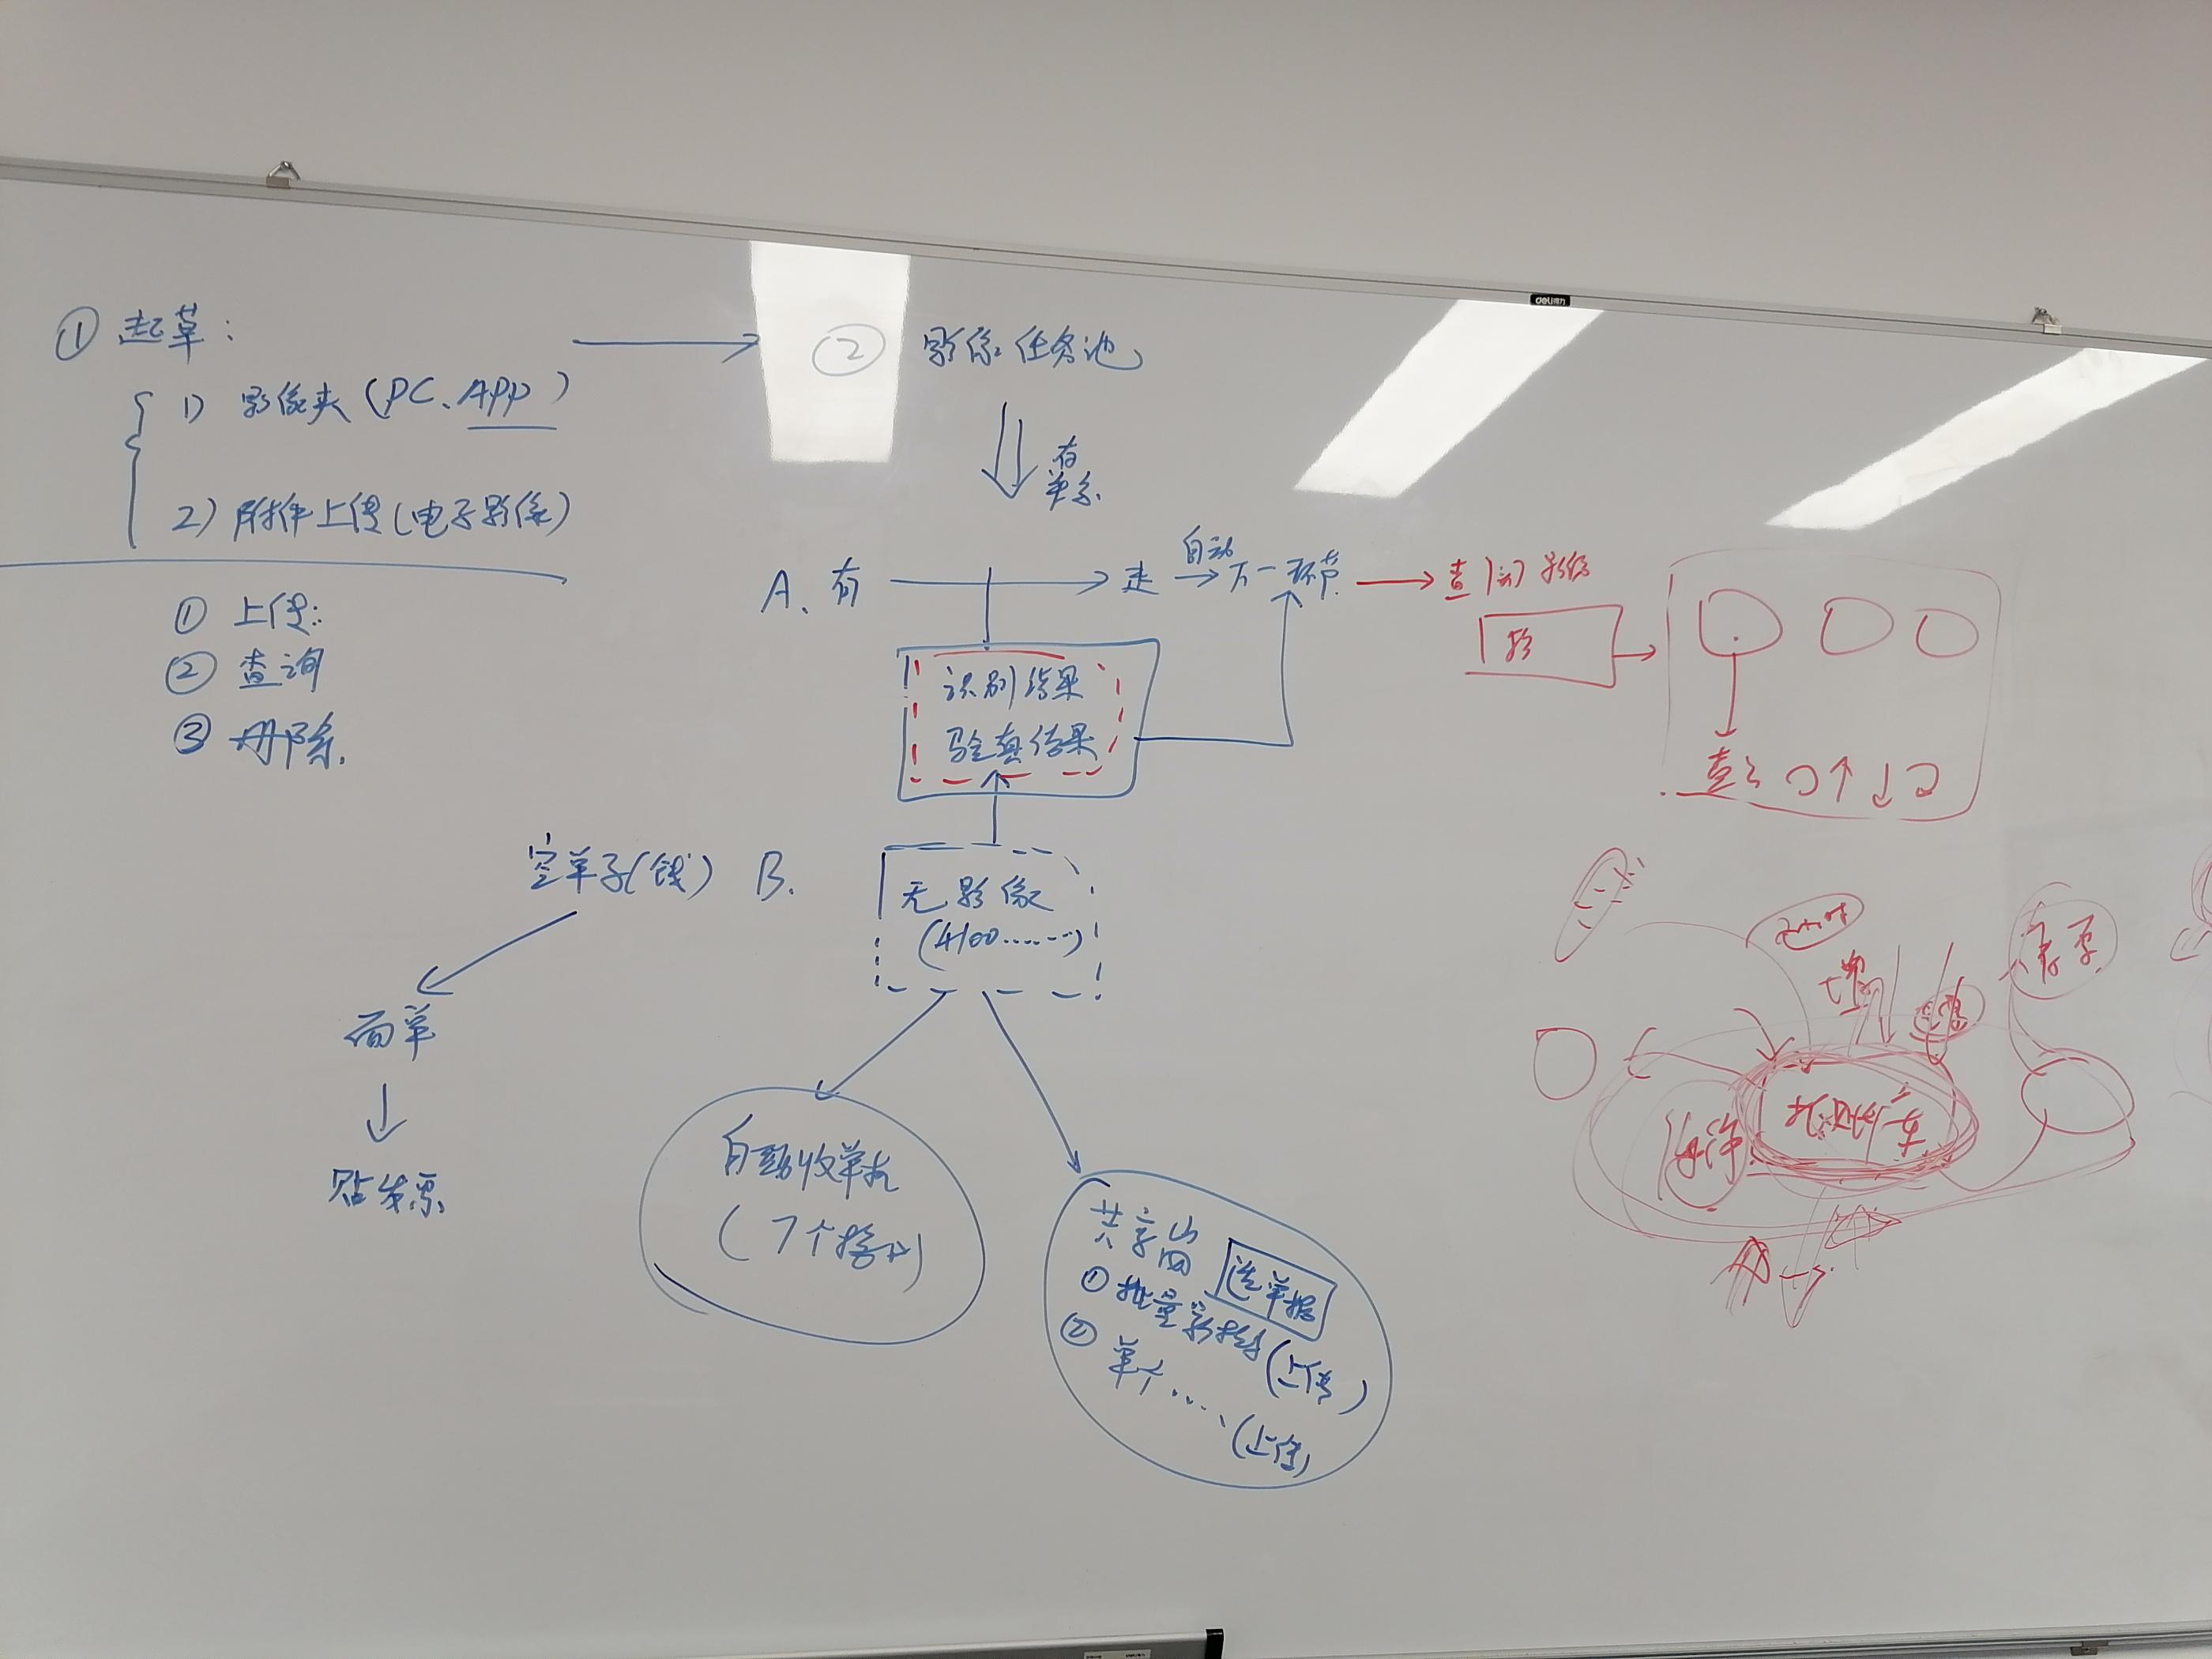 deli得力
① 起草:
1) 影像夹(PC、APP)
2) 附件上传(电子影像)
① 上传:
② 查询
③ 册除.
② 影像任务池
有
单子.
A、有
走
自动
下一环节.
查询影像
影
识别结果
验真结果
空单子(钱)
B.
无影像
(4100.......)
面单
贴发票.
自动收单机
(7个接口)
共享岗
选单据
① 批量影像
(上传)
② 单个.....
(上传)
发票
海洋